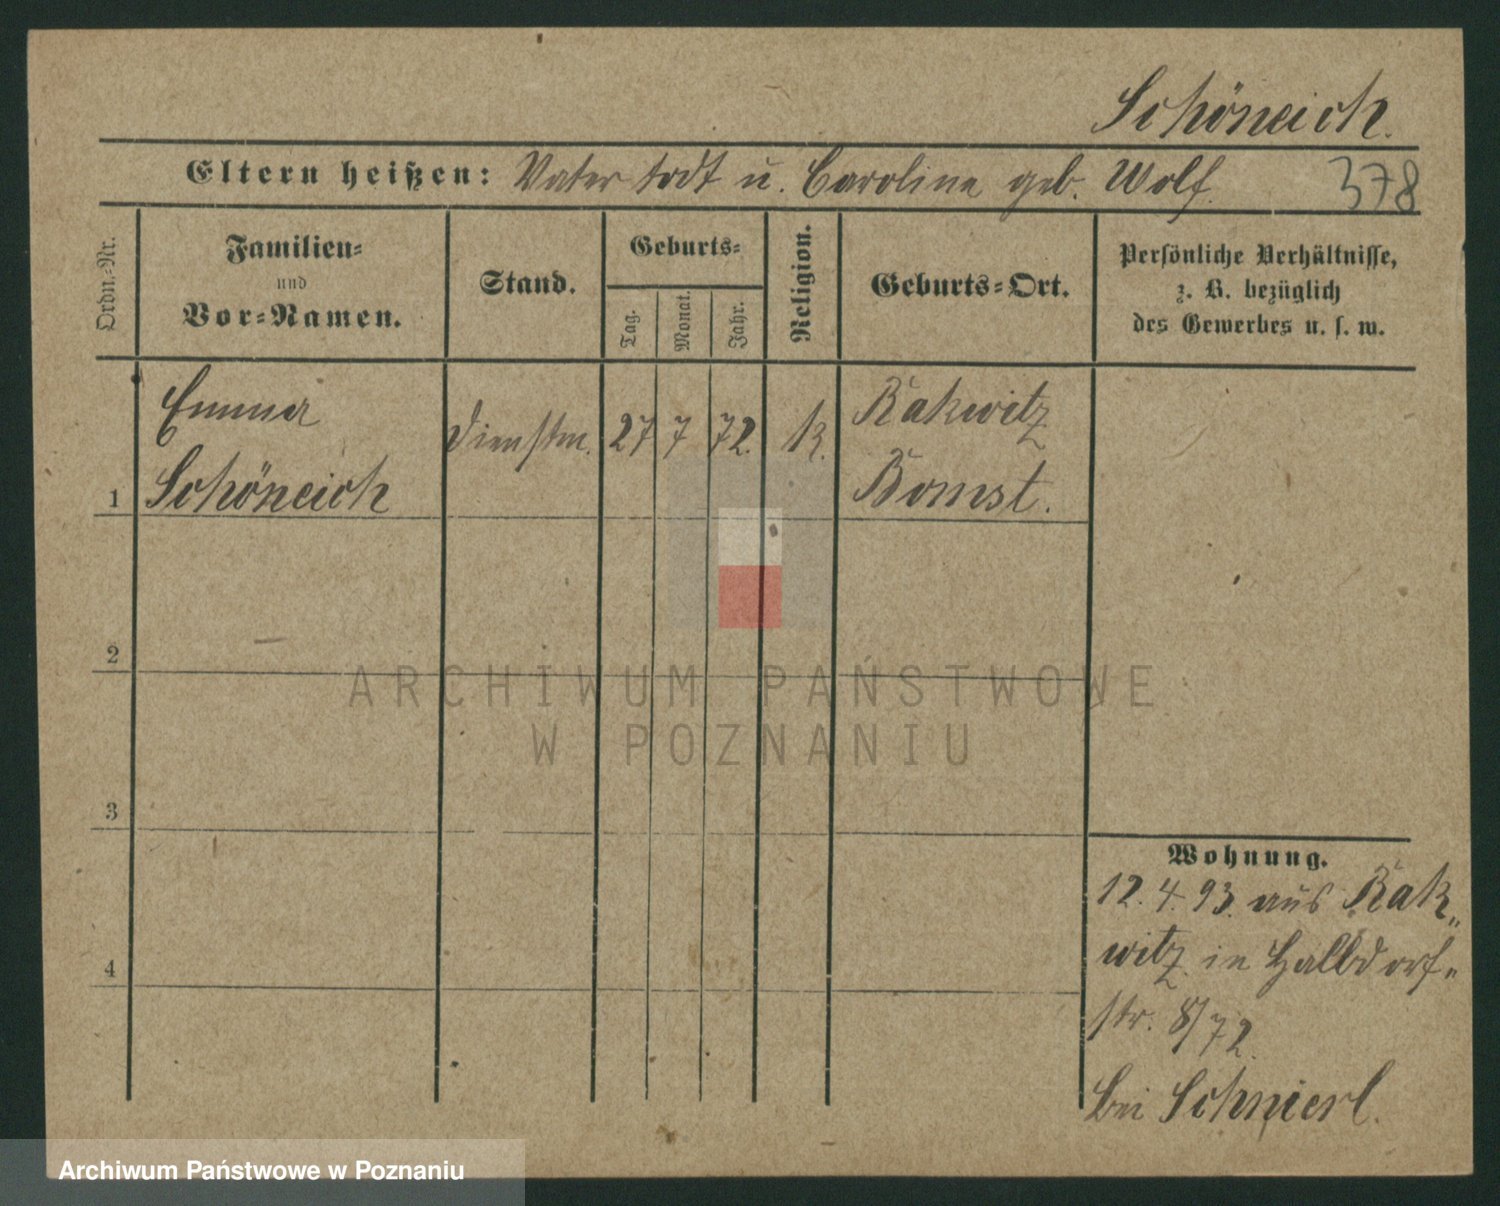 Schöneich.
Eltern heißen: Vater todt u. Caroline geb. Wolf.
378
Ordn.-Nr.
Familien-
und
Vor-Namen.
Stand.
Geburts-
Tag.
Monat.
Jahr.
Religion.
Geburts-Ort.
Persönliche Verhältnisse,
z. B. bezüglich
des Gewerbes u. s. w.
1
Emma
Schöneich
Dienstm.
27
7
72.
k.
Rakwitz
Bomst.
2
3
4
ARCHIWUM PAŃSTWOWE
W POZNANIU
Wohnung.
12.4.93. aus Rak„
witz in Halbdorf„
str. 8/72.
bei
Archiwum Państwowe w Poznaniu